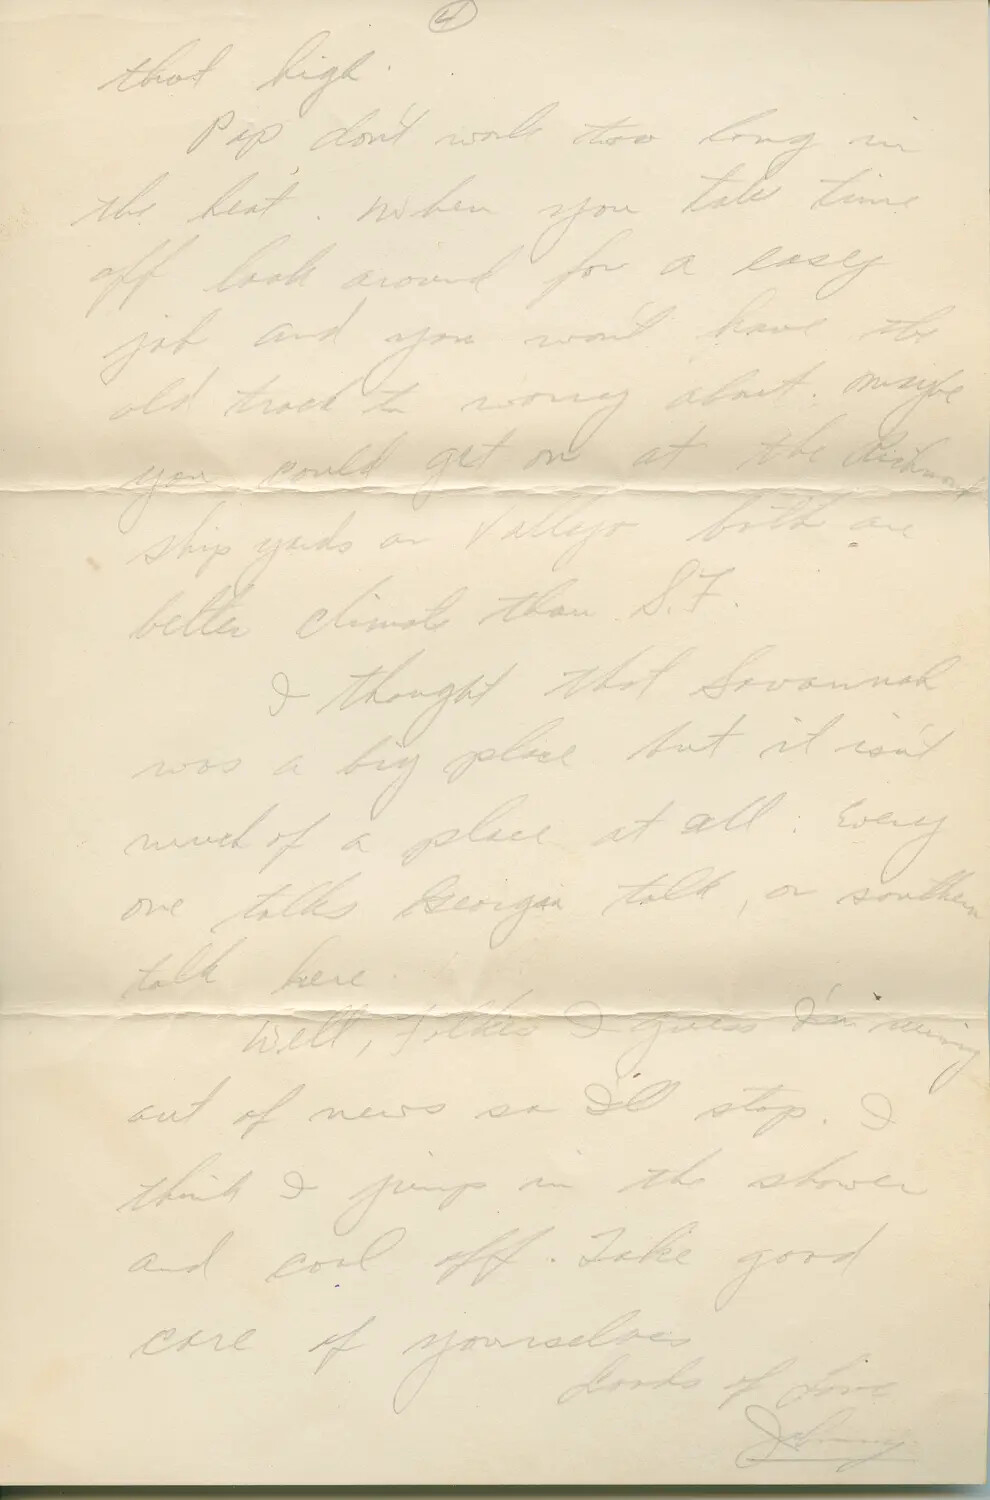 4
that high.
Pap don't work too long in
the heat. When you take time
off look around for a easey
job and you won't have the
old truck to worry about. Maybe
you could get on at the Richmond
ship yards or Vallejo both are
better climate than S.F.
I thought that Savannah
was a big place but it isn't
much of a place at all. Every
one talks Georgia talk, or southern
talk here.
Well, Folkes I guess I'm runing
out of news so I'll stop. I
think I jump in the shower
and cool off. Take good
care of yourselves
Loads of Love
Johnny